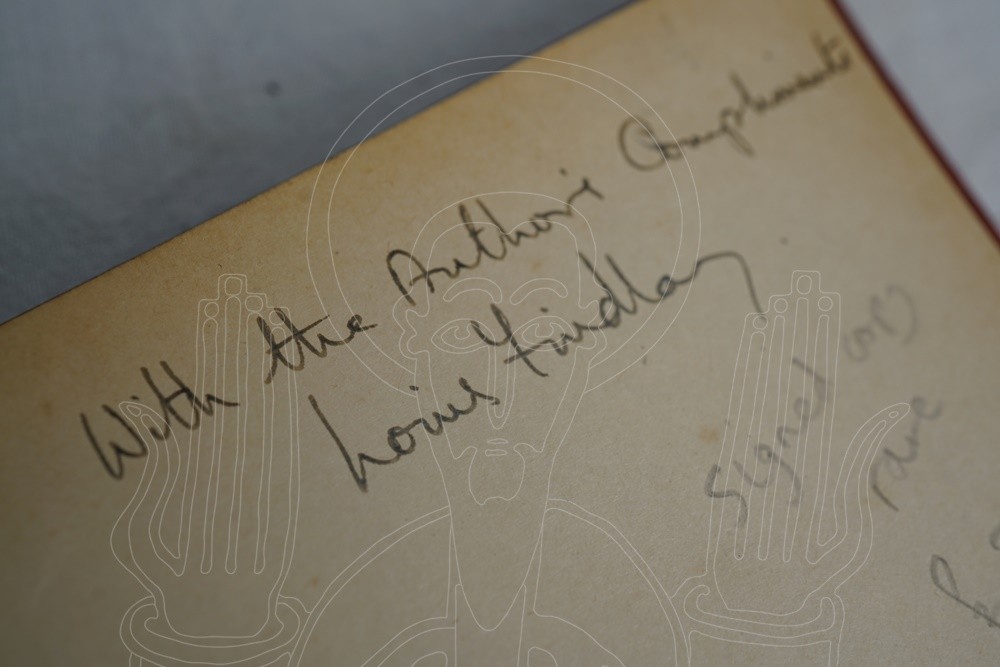 With the Author's Compliments
Louis Findlay
Signed copy
rare